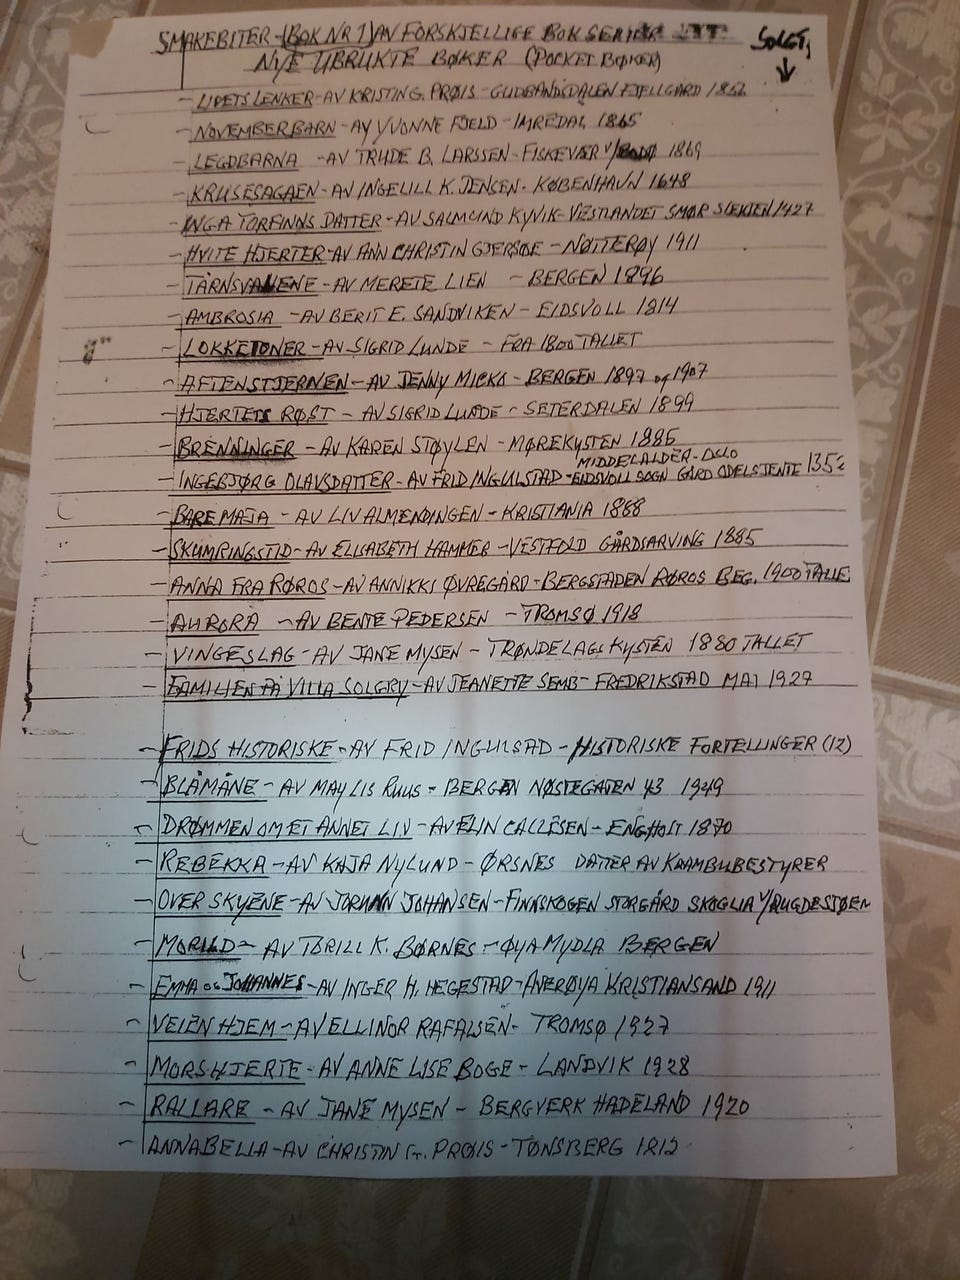 SMAKEBITER-(BOK NR 1) AV FORSKJELLIGE BOKSERIER
SOLGT,
NYE UBRUKTE BØKER (POCKET BØKER)
- LIVETS LENKER-AV KRISTIN G. PRØIS - GUDBRANDSDALEN FJELLGÅRD 1852
- NOVEMBERBARN - AV YVONNE FJELD - IMREDAL 1865
- LEGDBARNA - AV TRUDE B. LARSSEN - FISKEVÆR V/BODØ 1869
- KRUSESAGAEN - AV INGELILL K. JENSEN - KØBENHAVN 1648
- INGA TORFINNS DATTER - AV SALMUND KYVIK - VESTLANDET SMØR SLEKTEN 1427
- HVITE HJERTER - AV ANN CHRISTIN GJERSØE - NØTTERØY 1911
- TÅRNSVALENE - AV MERETE LIEN - BERGEN 1896
- AMBROSIA - AV BERIT E. SANDVIKEN - EIDSVOLL 1814
- LOKKETONER - AV SIGRID LUNDE - FRA 1800 TALLET
- AFTENSTJERNEN - AV JENNY MICKO - BERGEN 1897 og 1907
- HJERTETS RØST - AV SIGRID LUNDE - SETERDALEN 1899
- BRENNINGER - AV KAREN STØYLEN - MØREKYSTEN 1885
MIDDELALDER - OSLO
- INGEBJØRG OLAVSDATTER - AV FRID INGULSTAD - EIDSVOLL SOGN GÅRD ODELSJENTE 1352
- BARE MAJA - AV LIV ALMENDINGEN - KRISTIANIA 1868
- SKUMRINGSTID - AV ELISABETH HAMMER - VESTFOLD GÅRDSARVING 1885
- ANNA FRA RØROS - AV ANNIKKI ØVREGÅRD - BERGSTADEN RØROS BEG. 1900 TALLE
- AURORA - AV BENTE PEDERSEN - TROMSØ 1918
- VINGESLAG - AV JANE MYSEN - TRØNDELAGSKYSTEN 1880 TALLET
- FAMILIEN PÅ VILLA SOLGRY - AV JEANETTE SEMB - FREDRIKSTAD MAI 1927
- FRIDS HISTORISKE - AV FRID INGULSAD - HISTORISKE FORTELLINGER (12)
- BLÅMÅNE - AV MAY LIS RUUS - BERGEN NØSTEGATEN 43 1949
- DRØMMEN OM ET ANNET LIV - AV ELIN CALLESEN - ENGHOLT 1870
- REBEKKA - AV KAJA NYLUND - ØRSNES DATTER AV KRAMBUBESTYRER
- OVER SKYENE - AV JORUNN JOHANSEN - FINNSKOGEN STORGÅRD SKOGLIA V/RUGDESJØEN
- MORILD - AV TORILL K. BØRNES - ØYA MYDLA BERGEN
- EMMA OG JOHANNES - AV INGER H. HEGESTAD - AVERØYA KRISTIANSAND 1911
- VEIEN HJEM - AV ELLINOR RAFALSEN - TROMSØ 1927
- MORSHJERTE - AV ANNE LISE BOGE - LANDVIK 1928
- RALLARE - AV JANE MYSEN - BERGVERK HADELAND 1920
- ANNABELLA - AV CHRISTIN G. PRØIS - TØNSBERG 1812